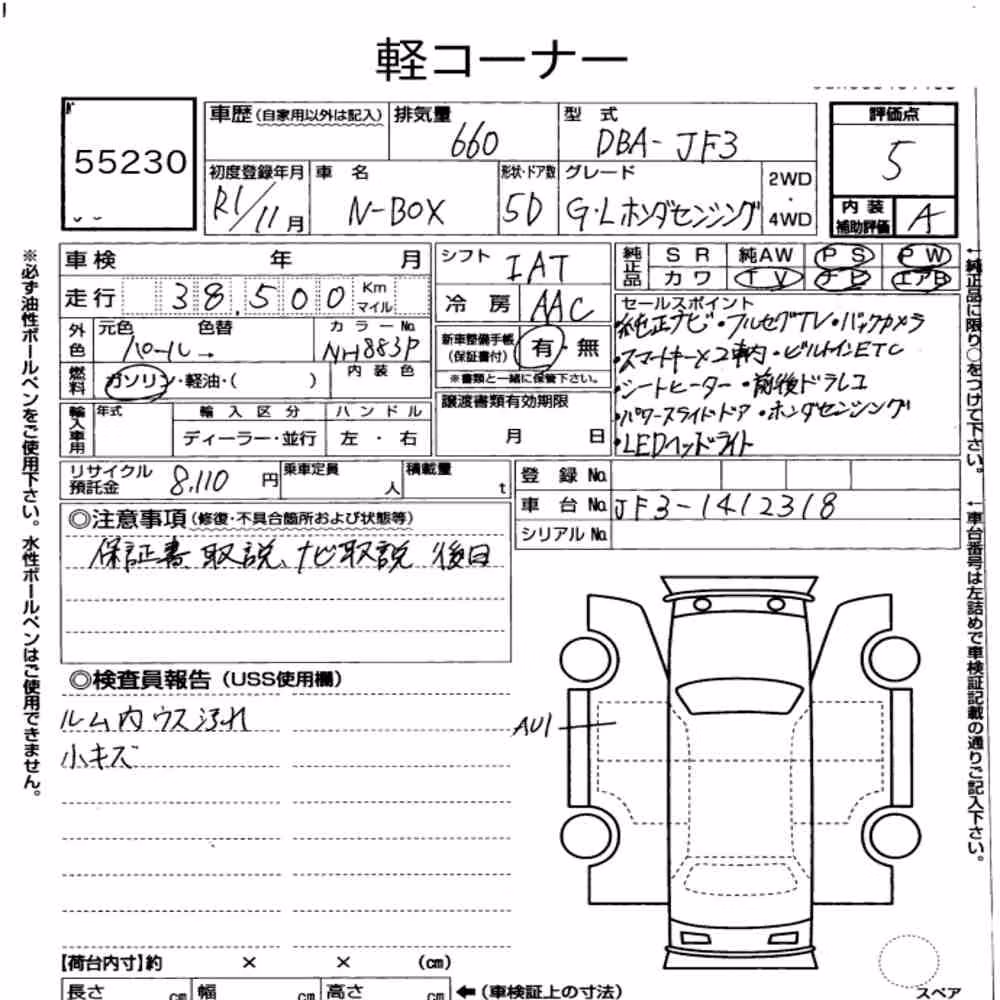 軽コーナー
55230
車歴 (自家用以外は記入)
排気量
660
型 式
DBA-JF3
評価点
5
初度登録年月
R1/11月
車 名
N-BOX
形状・ドア数
5D
グレード
G・Lホンダセンシング
2WD
・
4WD
内 装
補助評価
A
※必ず油性ボールペンをご使用下さい。水性ボールペンはご使用できません。
車検 年 月
走行 38,500 Km
マイル
シフト
IAT
冷 房
AAC
純正品
S R
純AW
P S
P W
カワ
T V
ナビ
エアB
外色
元色 色替
パール→
カラーNo.
NH883P
燃料
ガソリン・軽油・( )
内 装 色
新車整備手帳
(保証書付)
有・無
※書類と一緒に保管下さい。
セールスポイント
・純正ナビ・フルセグTV・バックカメラ
・スマートキー×2車内・ビルトインETC
・シートヒーター・前後ドラレコ
・パワースライドドア・ホンダセンシング
・LEDヘッドライト
輸入車用
年式
輸 入 区 分
ディーラー・並行
ハ ン ド ル
左 ・ 右
譲渡書類有効期限
月 日
リサイクル
預託金
8,110 円
乗車定員
人
積載量
t
登 録 No.
車 台 No.
JF3-1412318
シリアル No.
←純正品に限り○をつけて下さい。
←車台番号は左詰めで車検証記載の通りご記入下さい。
◎注意事項 (修復・不具合箇所および状態等)
保証書 取説、ナビ取説 後日
◎検査員報告 (USS使用欄)
ルム内 ウス汚れ
小キズ
AU1
【荷台内寸】約 × × (cm)
長さ cm
幅 cm
高さ cm
←(車検証上の寸法)
スペア